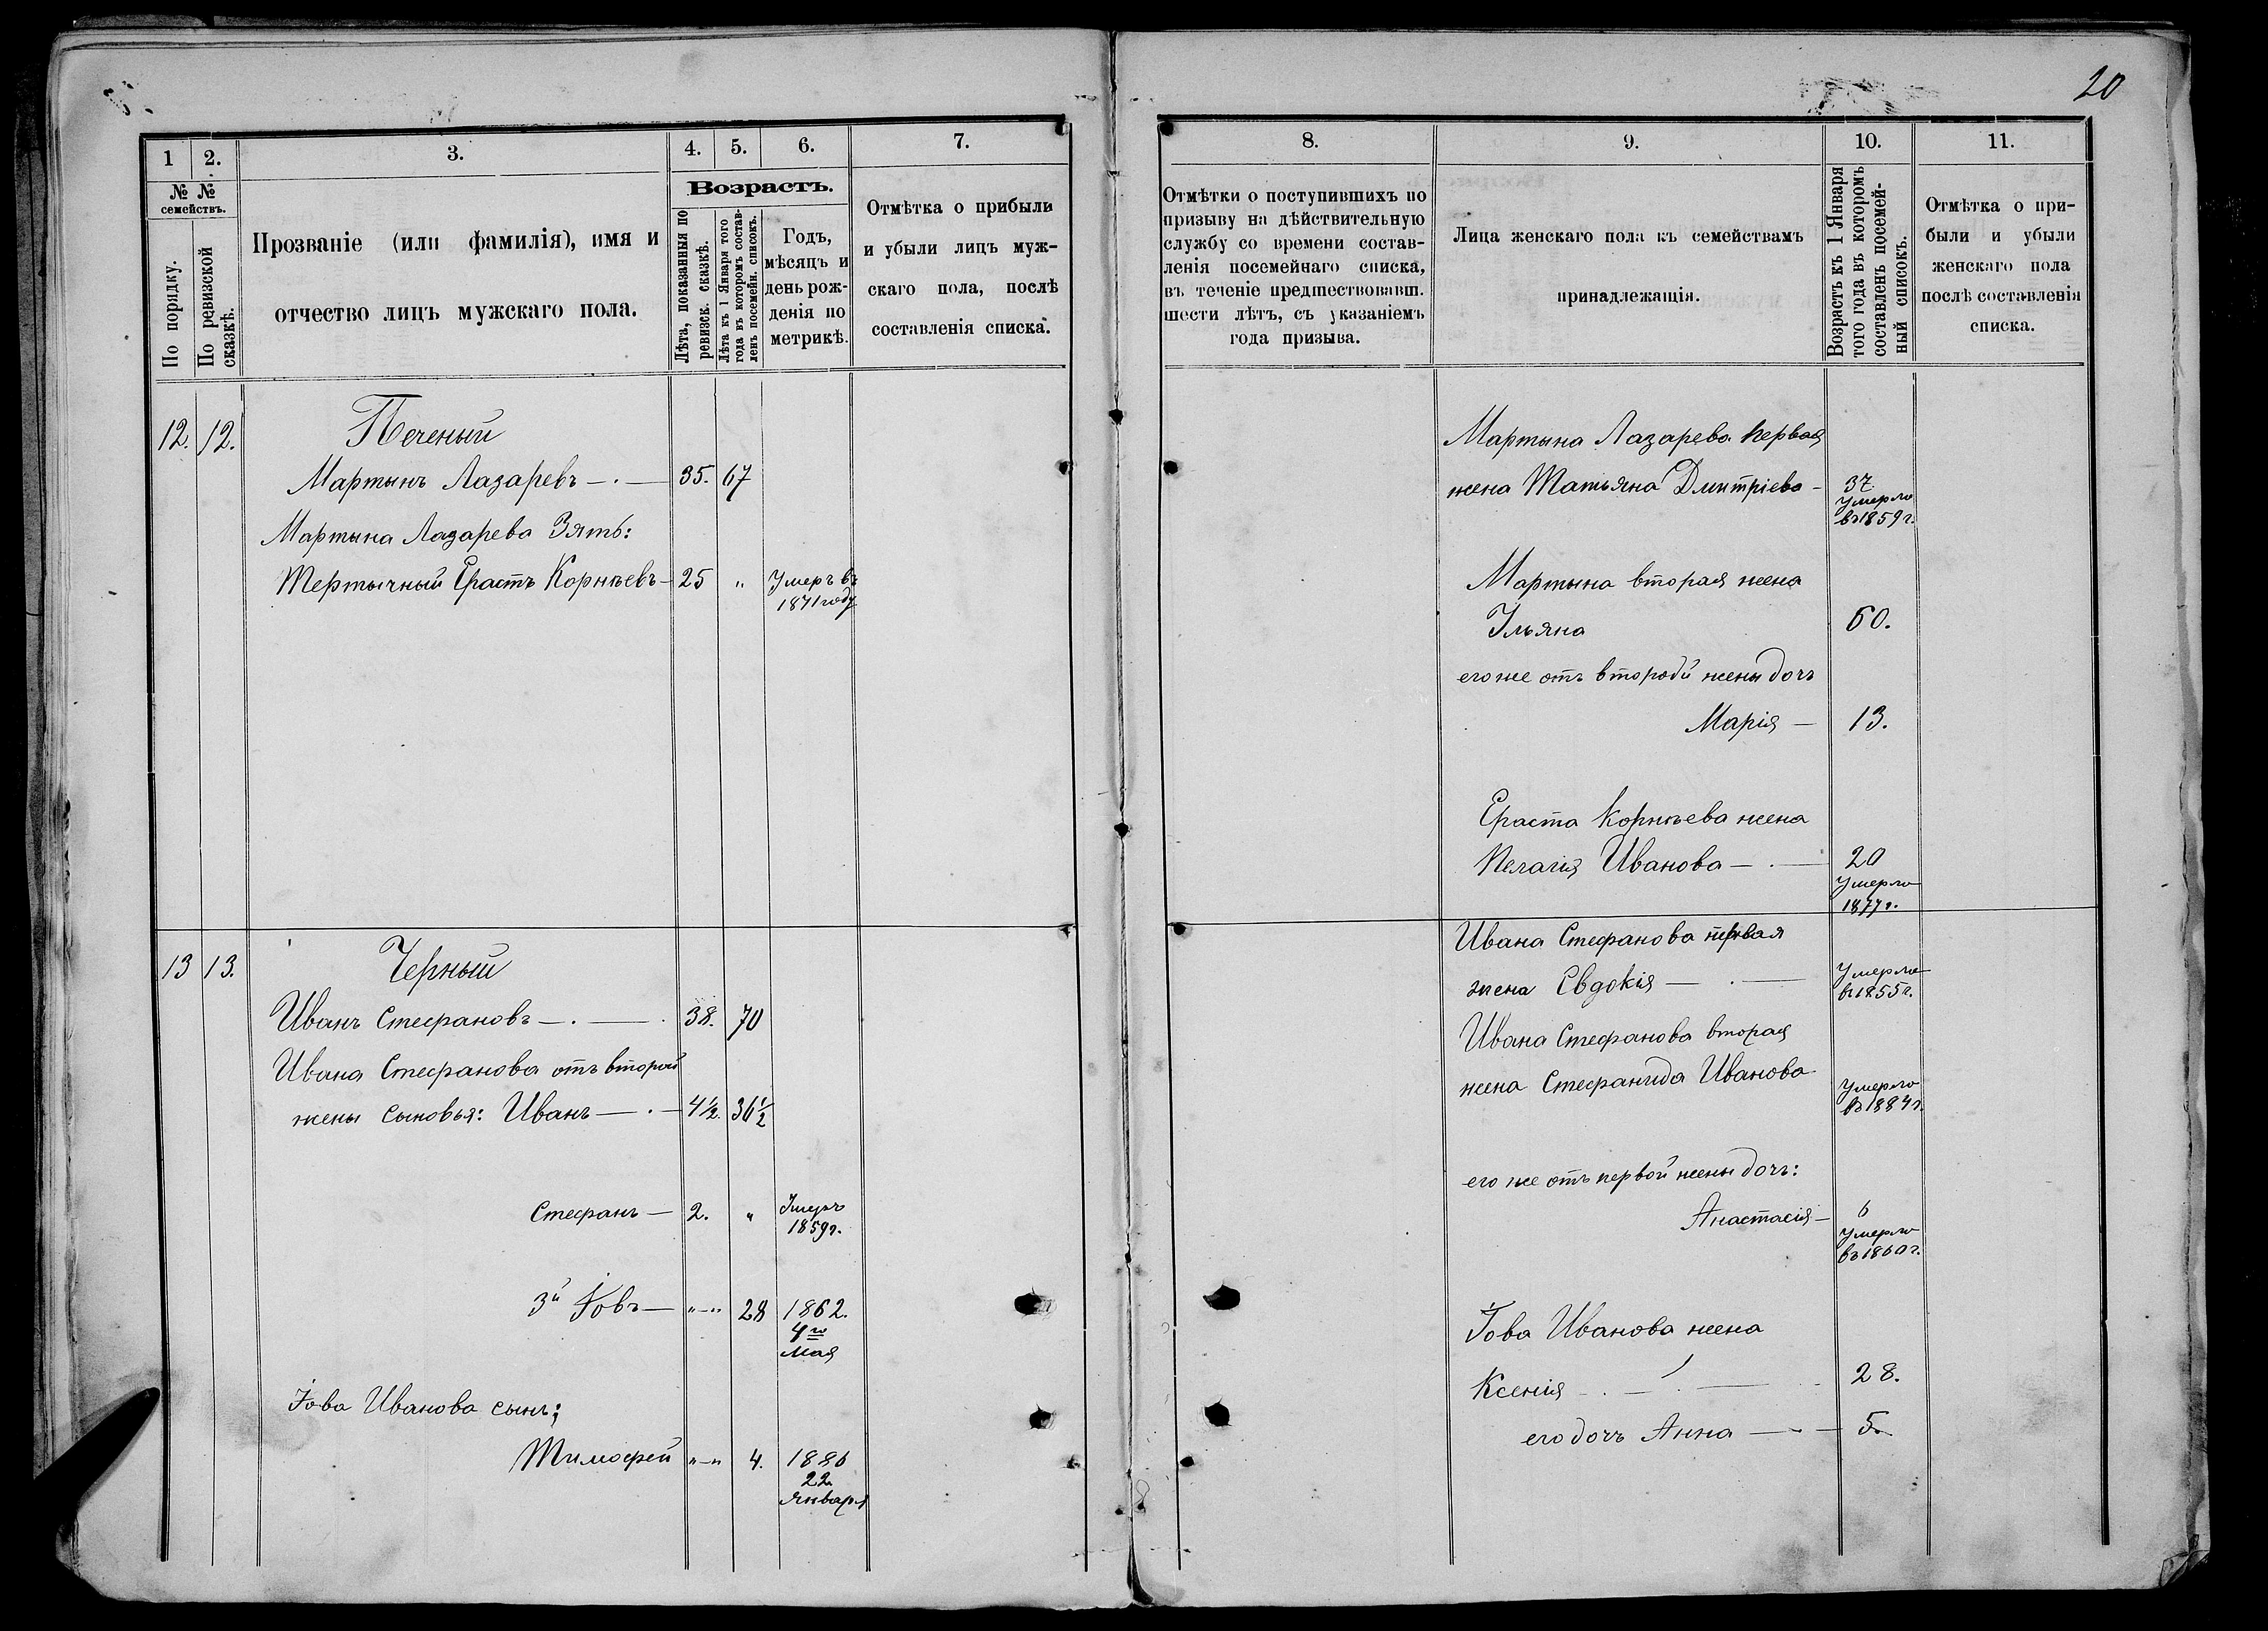 20
1
2.
3.
4.
5.
6.
7.
№ №
семействъ.
По порядку.
По ревизской
сказкѣ.
Прозваніе (или фамилія), имя и
отчество лицъ мужскаго пола.
Возрастъ.
Лѣта, показанныя по
ревизск. сказкѣ.
Лѣта къ 1 Января того
года въ которомъ состав-
ленъ посемейн. списокъ.
Годъ,
мѣсяцъ и
день рож-
денія по
метрикѣ.
Отмѣтка о прибыли
и убыли лицъ муж-
скаго пола, послѣ
составленія списка.
12. 12. Печеный
Мартынъ Лазаревъ — . — 35. 67
Мартына Лазарева Зять:
Тертычный Ерастъ Корнѣевъ — 25 " Умеръ въ
1871 году
13 13. Черный
Иванъ Стефановъ — . — . 38. 70
Ивана Стефанова отъ второй
жены сыновья: Иванъ — . — 4½. 36½
Стефанъ — 2. " Умеръ
1859 г.
3й Іовъ — "—" 28 1862.
4го
мая
Іова Иванова сынъ;
Тимофей "—" 4. 1886
22
января
8.
9.
10.
11.
Отмѣтки о поступившихъ по
призыву на дѣйствительную
службу со времени состав-
ленія посемейнаго списка,
въ теченіе предшествовавш.
шести лѣтъ, съ указаніемъ
года призыва.
Лица женскаго пола къ семействамъ
принадлежащія.
Возрастъ къ 1 Января
того года въ которомъ
составленъ посемей-
ный списокъ.
Отмѣтка о при-
были и убыли
женскаго пола
послѣ составленія
списка.
Мартына Лазарева первая
жена Татьяна Дмитріева — 37.
Умерла
въ 1859 г.
Мартына вторая жена
Ульяна 60.
его же отъ второй жены дочь
Марія — 13.
Ераста Корнѣева жена
Пелагія Иванова — . — 20
Умерла
1877 г.
Ивана Стефанова первая
жена Евдокія — . — Умерла
въ 1855 г.
Ивана Стефанова вторая
жена Стефанида Иванова Умерла
въ 1884 г.
его же отъ первой жены дочь:
Анастасія — 6
Умерла
въ 1860 г.
Іова Иванова жена
Ксенія — . — . — 28.
его дочь Анна — — 5.